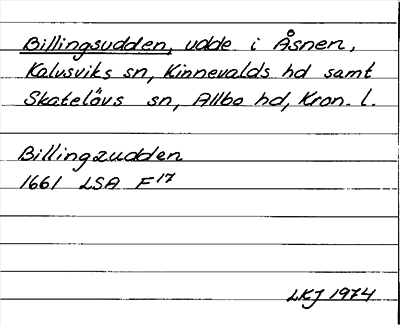 Billingsudden, udde i Åsnen,
Kalvsviks sn, Kinnevalds hd samt
Skatelövs sn, Allbo hd, Kron. l.
Billingzudden
1661 LSA F17
LKJ 1974